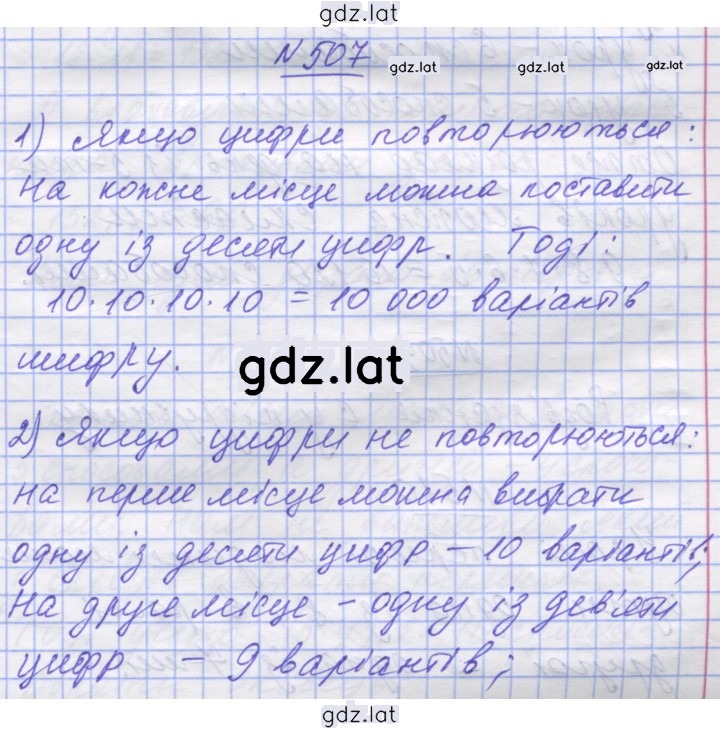 gdz.lat
N 507
gdz.lat gdz.lat gdz.lat
1) Якщо цифри повторюються:
На кожне місце можна поставити
одну із десяти цифр. Тоді:
10·10·10·10 = 10 000 варіантів
шифру.
gdz.lat
2) Якщо цифри не повторюються:
на перше місце можна вибрати
одну із десяти цифр – 10 варіантів;
На друге місце – одну із дев'яти
цифр – 9 варіантів;
gdz.lat